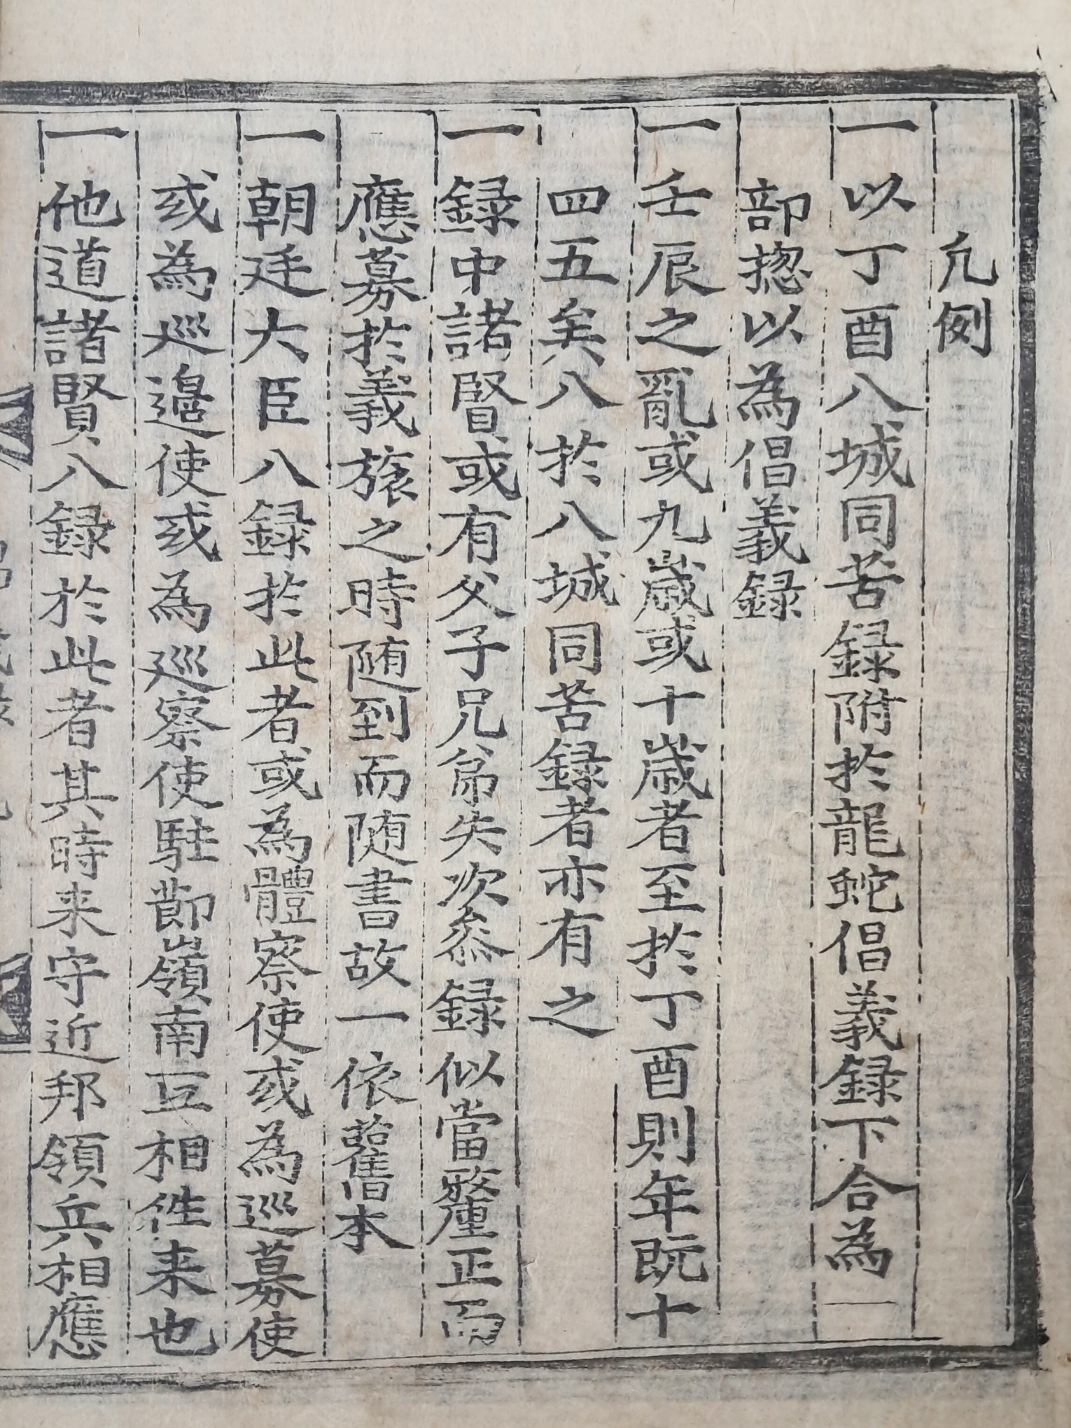 凡例
一以丁酉入城同苦録附於龍蛇倡義録下合為一
部捴以為倡義録
一壬辰之亂或九歲或十歲者至於丁酉則年既十
四五矣入於入城同苦録者亦有之
一録中諸賢或有父子兄弟失次叅録似當釐正而
應募於義旅之時随到而随書故一依舊本
一朝廷大臣入録於此者或為體察使或為巡募使
或為巡邉使或為巡察使駐節嶺南互相徃来也
一他道諸賢入録於此者其時来守近邦領兵相應